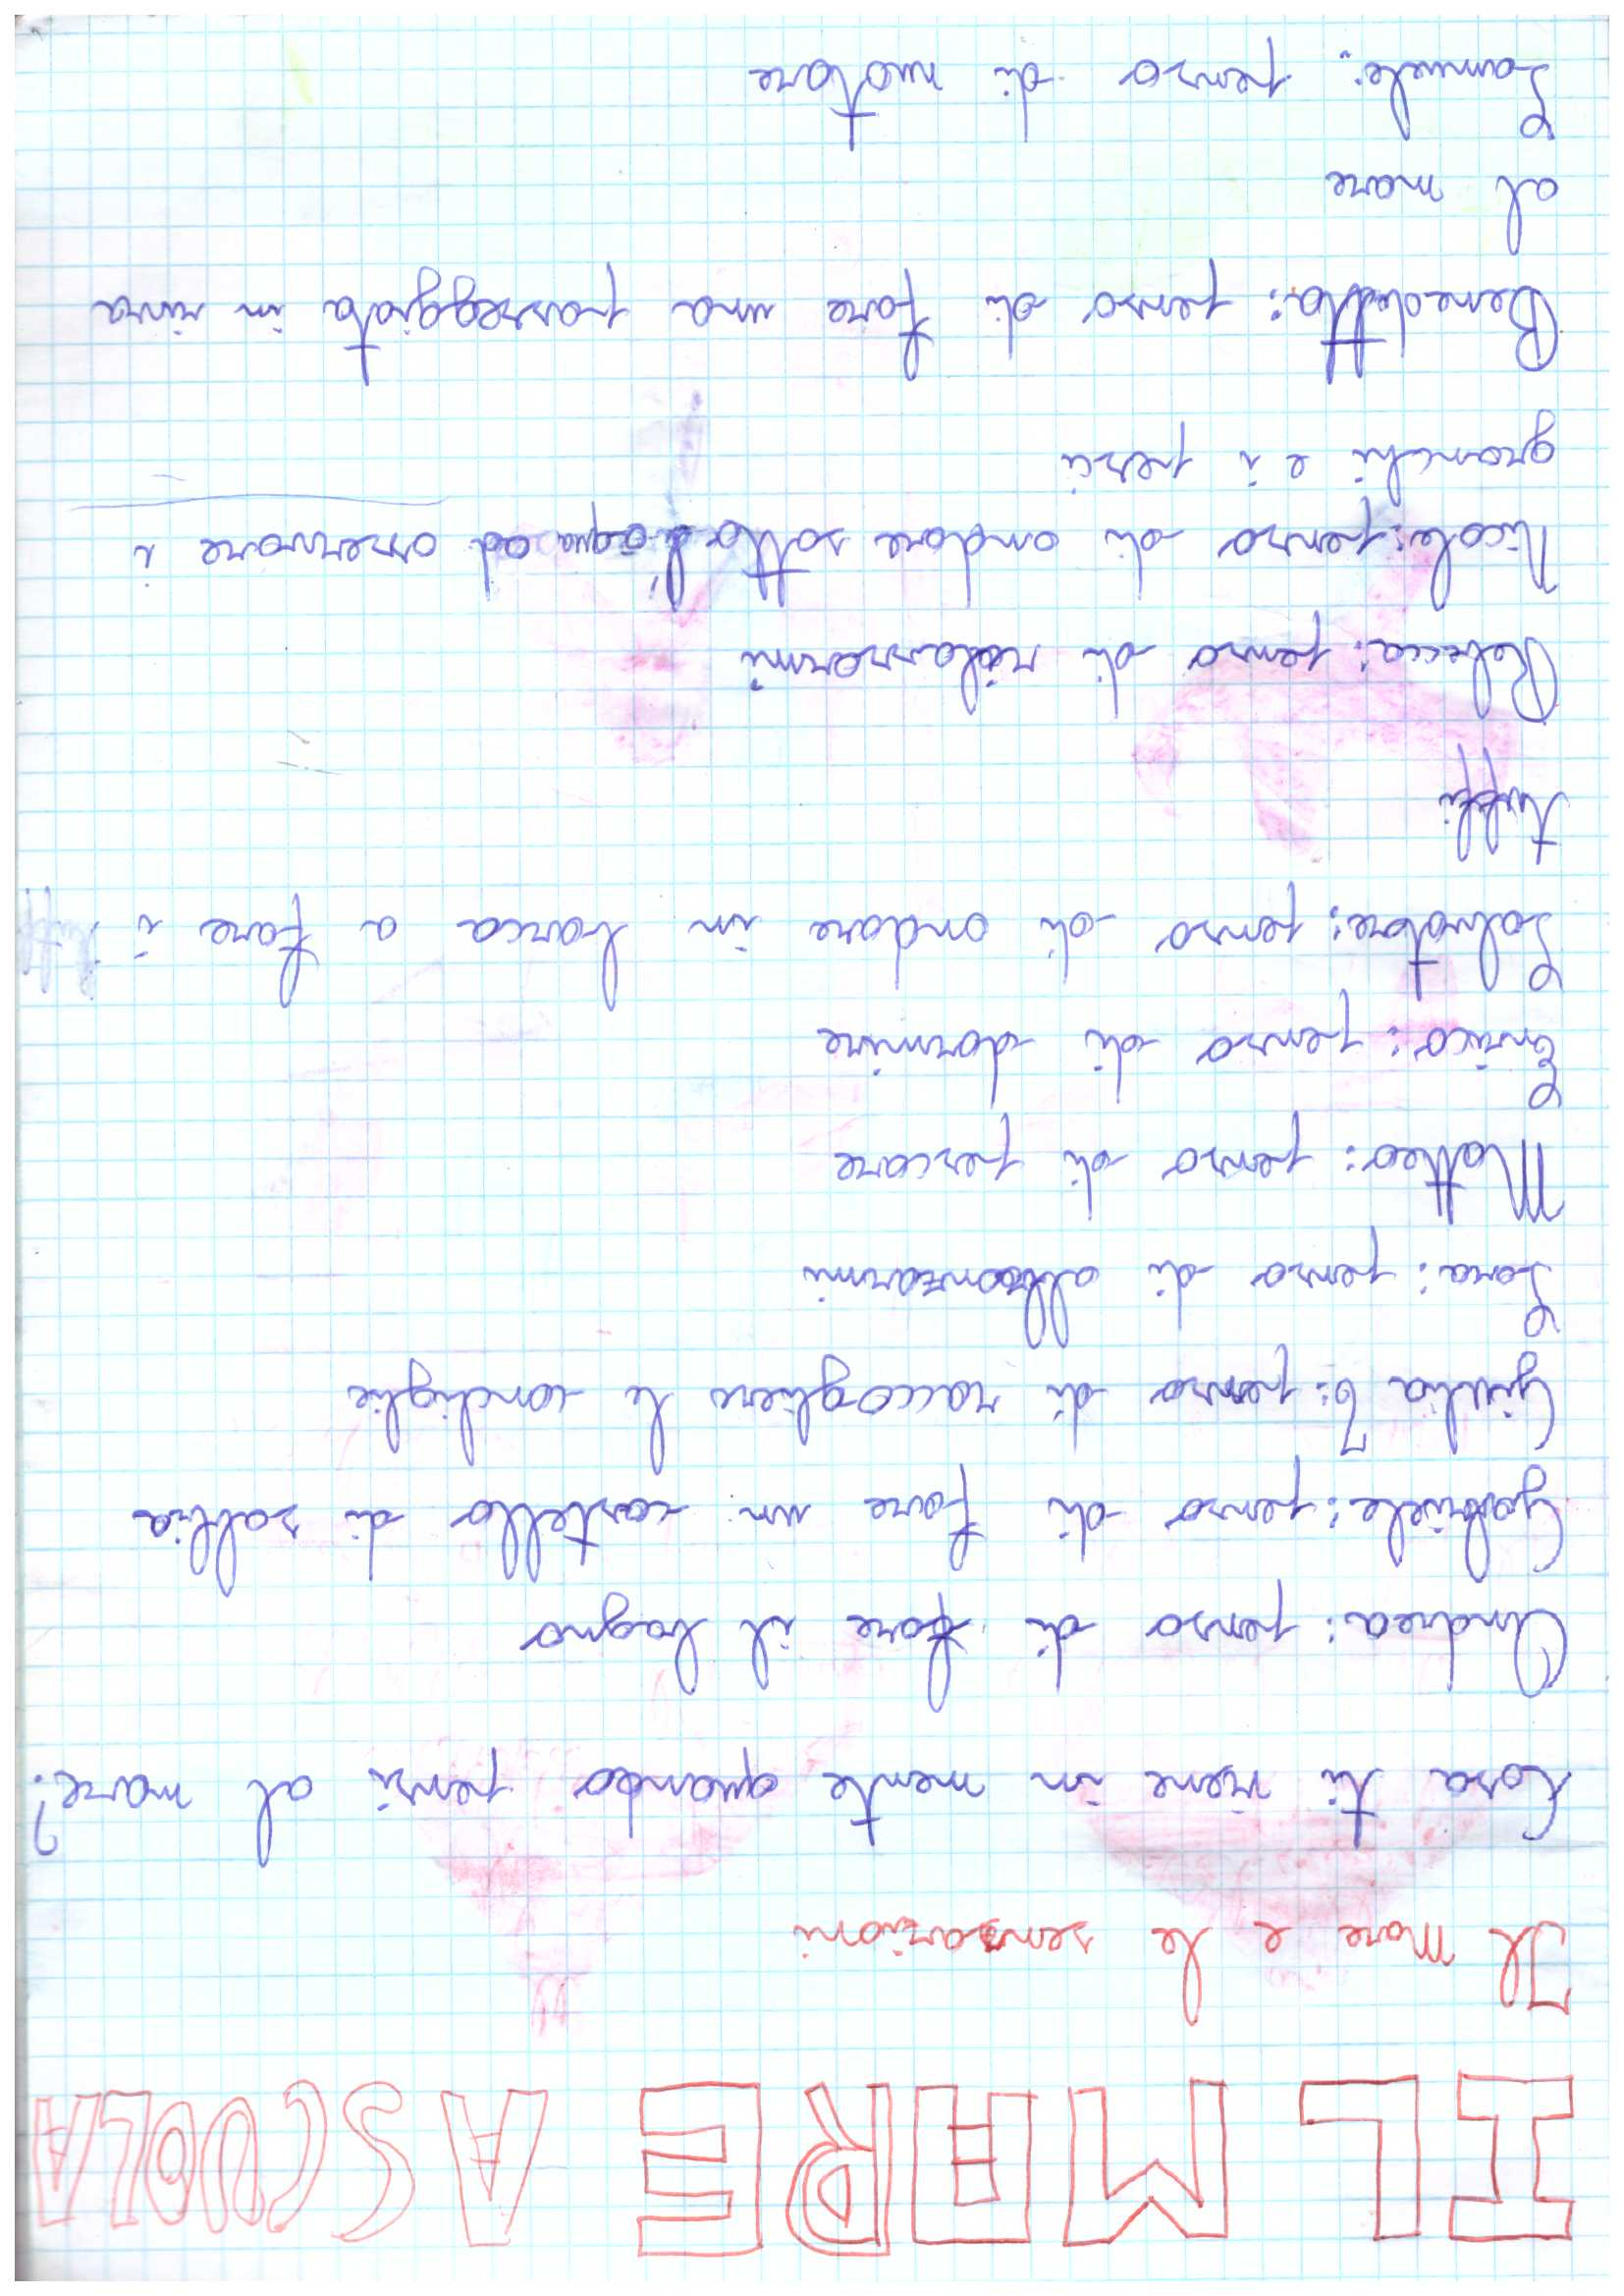 IL MARE A SCUOLA
Il mare e le sensazioni
Cosa ti viene in mente quando pensi al mare?
Andrea: penso di fare il bagno
Gabriele: penso di fare un castello di sabbia
Giulia B: penso di raccogliere le conchiglie
Sara: penso di abbronzarmi
Matteo: penso di pescare
Enrico: penso di dormire
Salvatore: penso di andare in barca a fare i
tuffi
Rebecca: penso di rilassarmi
Nicole: penso di andare sott'acqua ad osservare i
granchi e i pesci
Benedetta: penso di fare una passeggiata in riva
al mare
Samuele: penso di nuotare